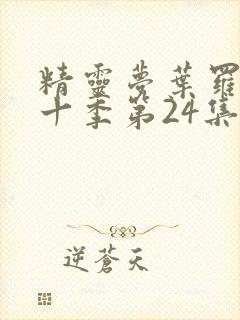 精靈夢葉羅
十季第24集
逆蒼天